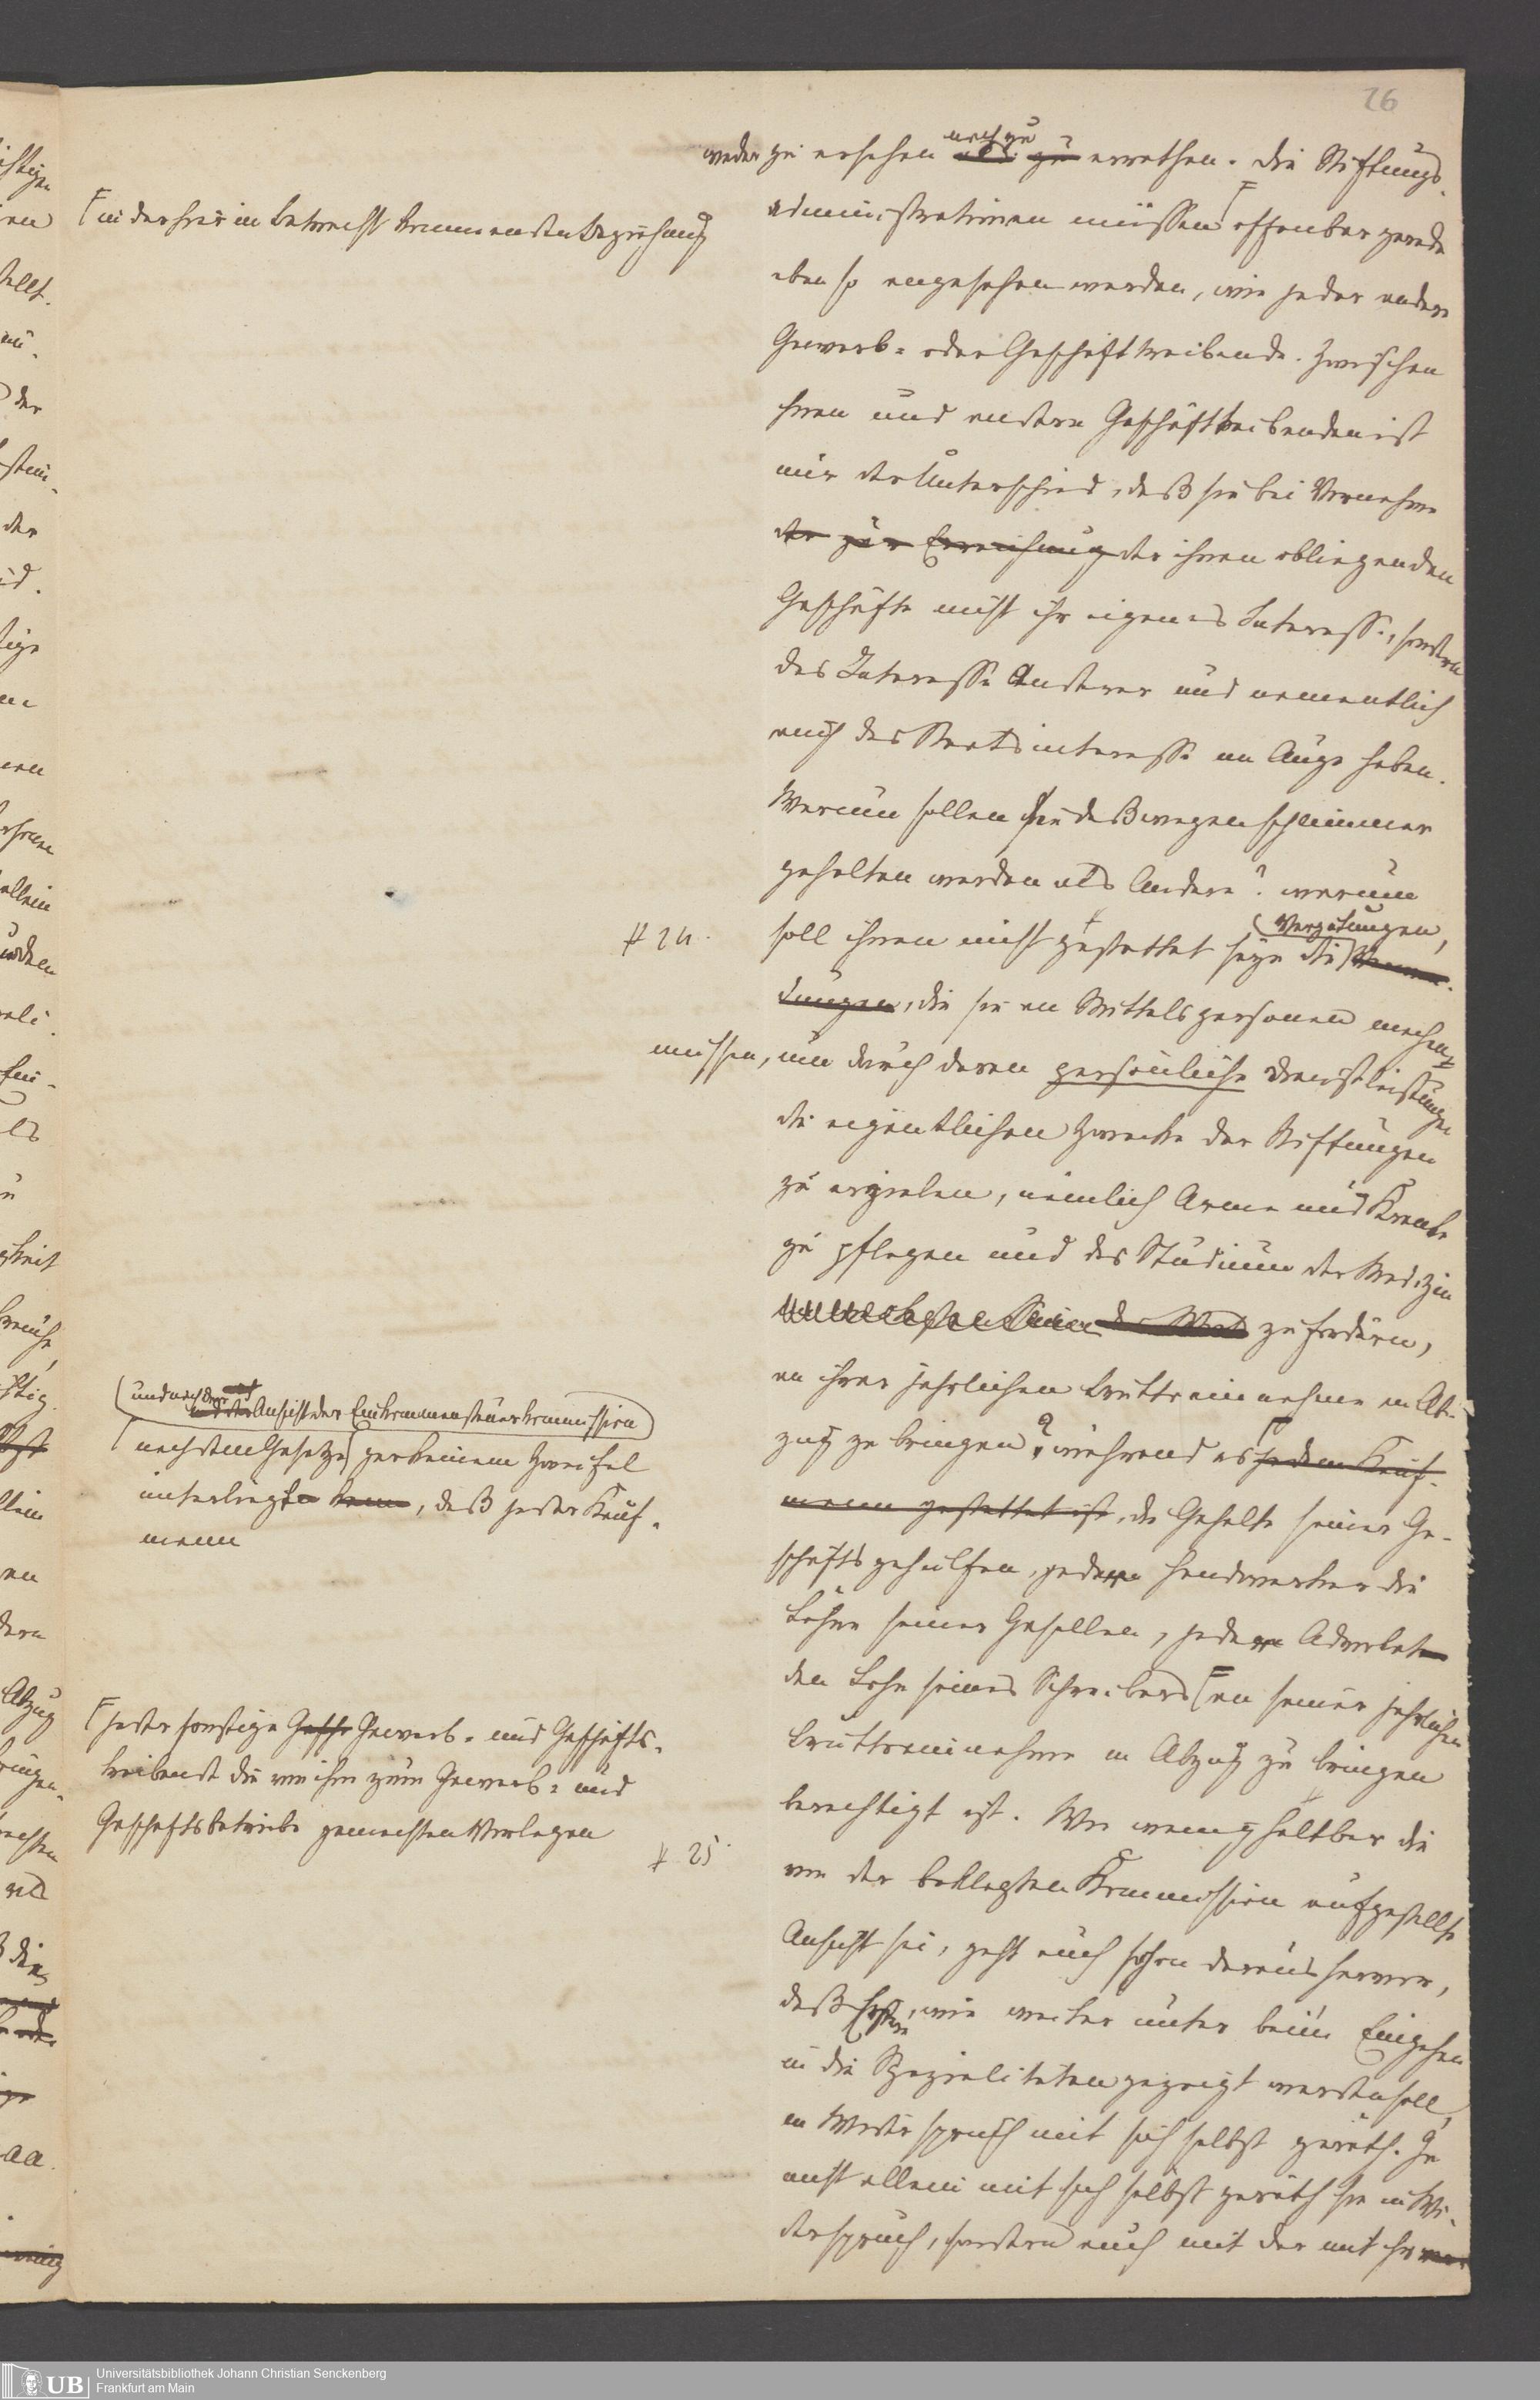 26
noch zu
weder zu ersehen als zu errathen. Die Stiftungs-
administrationen müssen offenbar gerade
eben so angesehen werden, wie jeder andere
Gewerb- oder Geschäfttreibende. Zwischen
ihnen und andern Geschäfttreibenden ist
nur der Unterschied, daß sie bei Vornahme
der zur Erreichung der ihnen obliegenden
Geschäfte nicht ihr eigenes Interesse, sondern
das Interesse Anderer und namentlich
auch das Staatsinteresse im Auge haben.
Warum sollen sie deßwegen schlimmer
gehalten werden als Andere? warum
Vergütungen,
soll ihnen nicht gestattet seyn die
dungen, die sie an Mittelspersonen machen
müssen, um durch deren persönliche Dienstleistungen
die eigentlichen Zwecke der Stiftungen
zu erzielen, nämlich Arme und Kranke
zu pflegen und das Studium der Medizin
zu fördern,
an ihrer jährlichen Bruttoeinnahme in Ab-
zug zu bringen? während es jedem Kauf-
mann gestattet ist, die Gehalte seiner Ge-
schäftsgehülfen, jeder Handwerker die
Löhne seiner Gesellen, jeder Advokat
den Lohn seines Schreibers an seiner jährlichen
Bruttoeinnahme in Abzug zu bringen
berechtigt ist. Wie wenig haltbar die
von der beklagten Kommission aufgestellte
Ansicht sei, geht auch schon daraus hervor,
daß Erstere, wie weiter unten beim Eingehen
in die Spezialitäten gezeigt werden soll,
in Widerspruch mit sich selbst geräth. Ja
nicht allein mit sich selbst geräth sie in Wi-
derspruch, sondern auch mit der mit ihr
in der hier in Betracht kommenden Beziehung
# 24.
und nach der
Ansicht der Einkommensteuerkommission
nach dem Gesetze gar keinem Zweifel
unterliegt kann, daß jeder Kauf-
mann
jeder sonstige Gesch Gewerb- und Geschäfts-
treibende die von ihm zum Gewerb- und
Geschäftsbetriebe gemachten Verlagen
# 25.
UB Universitätsbibliothek Johann Christian Senckenberg
Frankfurt am Main